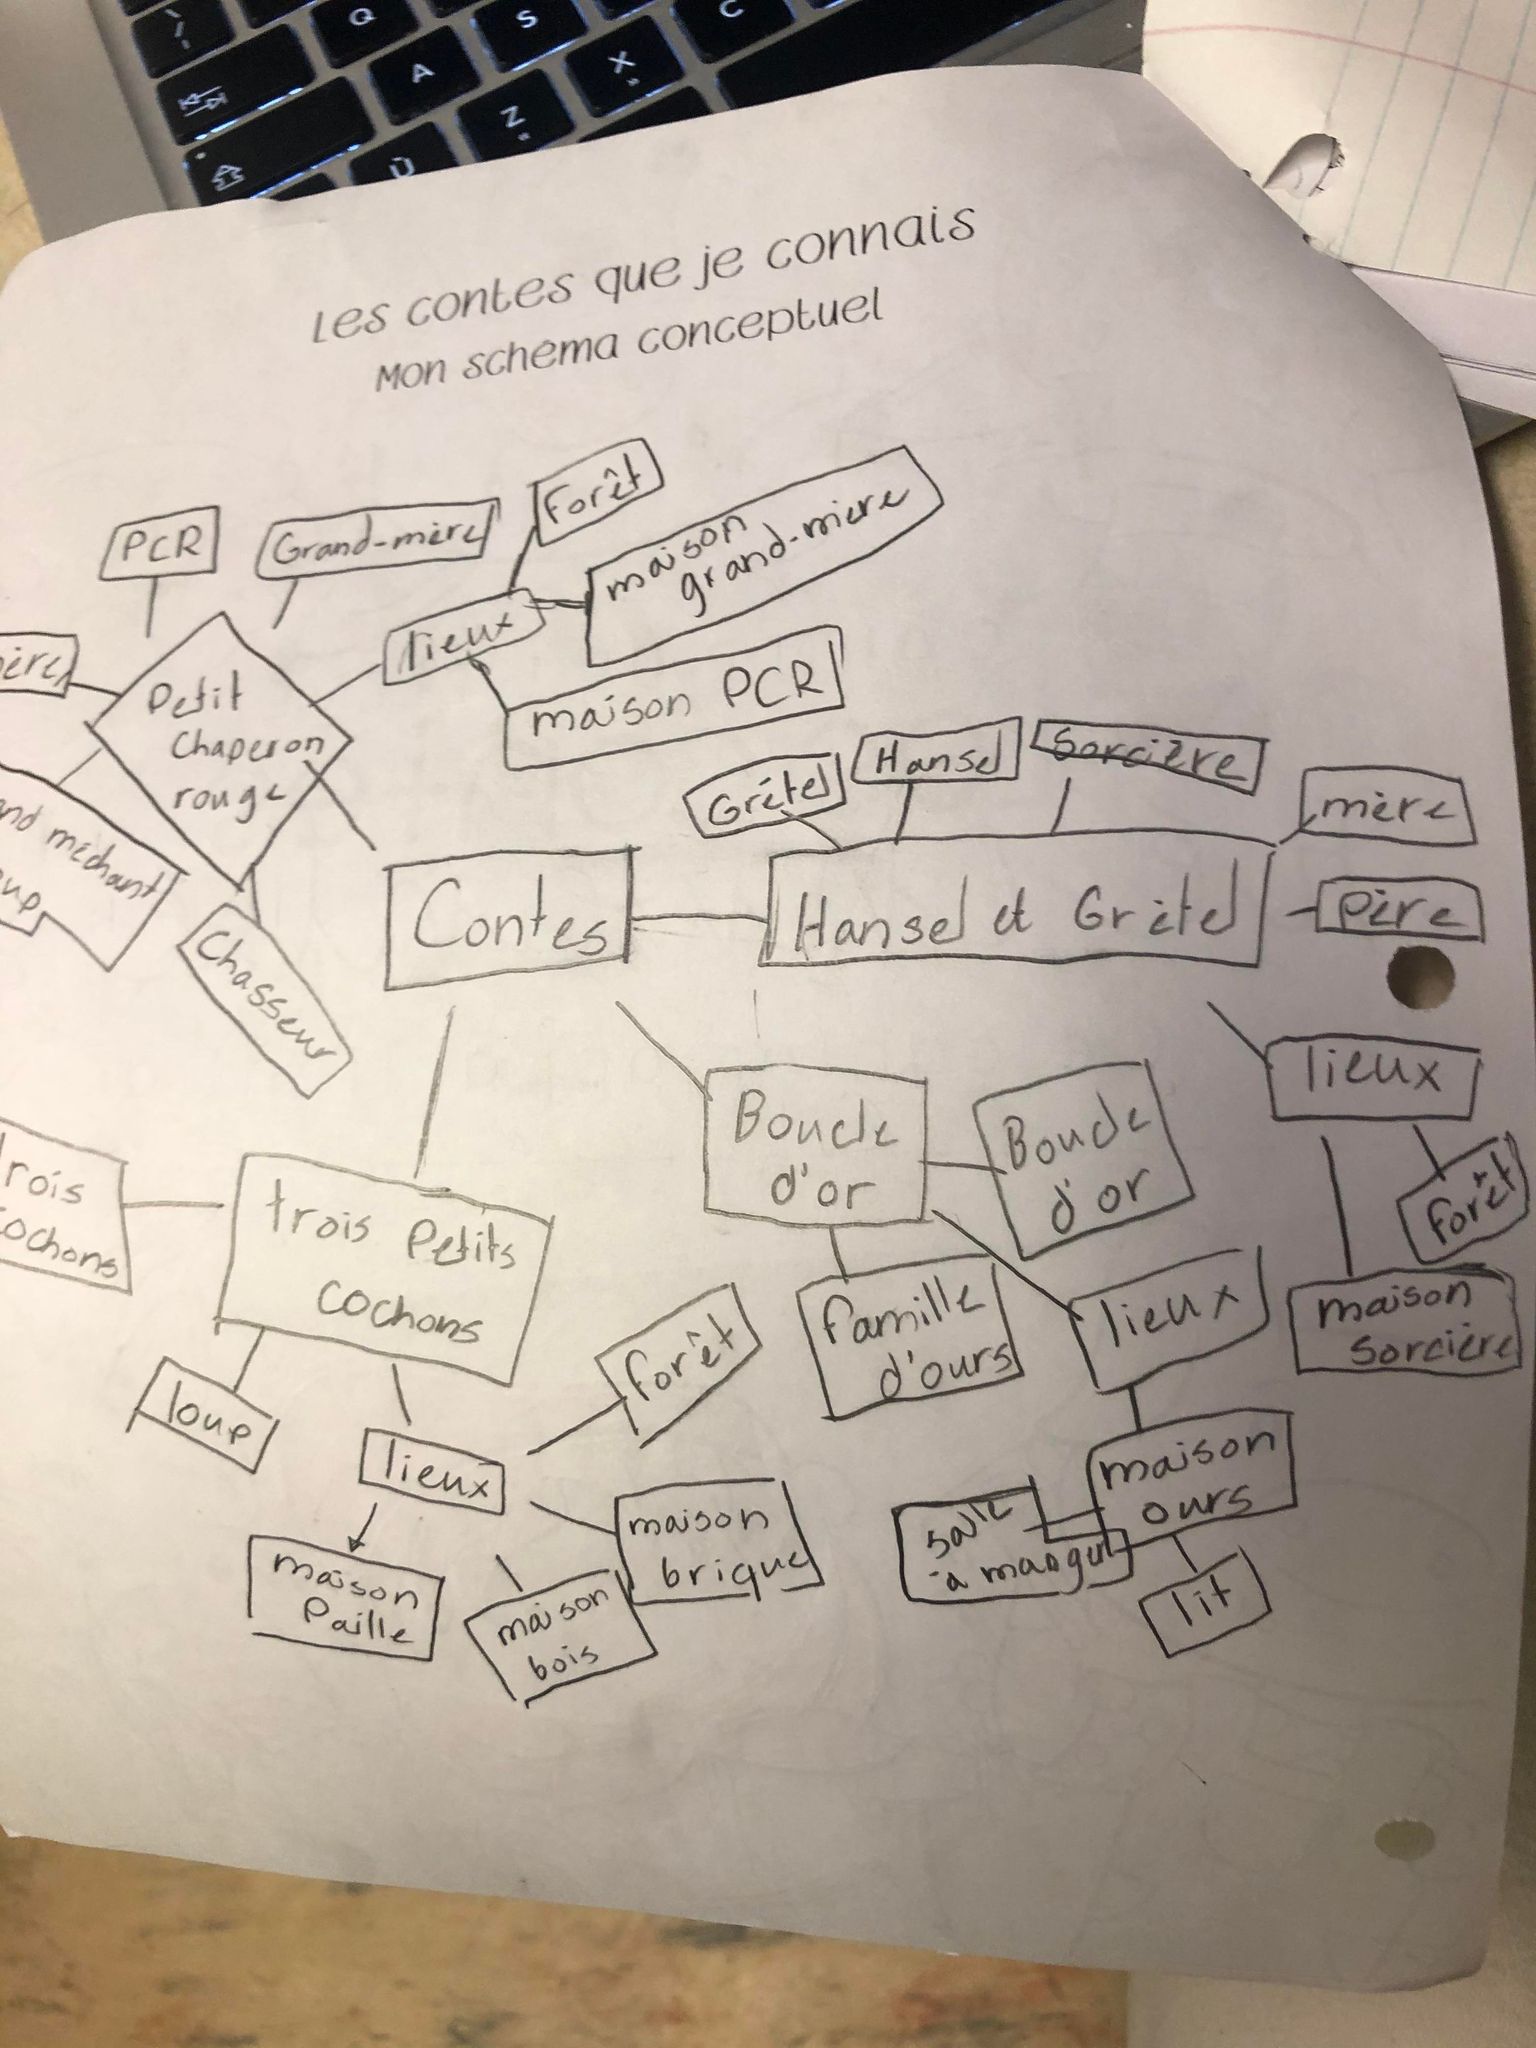 Q
S
C
A
X
Z
Ù
Les contes que je connais
Mon schéma conceptuel
PCR
Grand-mère
Forêt
maison
grand-mière
lieux
maison PCR
Petit
Chaperon
rouge
méchant
Chasseur
Contes
Grètel
Hansel
Sorcière
mère
père
Hansel et Grètel
lieux
forêt
maison
Sorcière
Boucle
d'or
Boucle
d'or
famille
d'ours
lieux
maison
ours
salle
à manger
lit
trois Petits
cochons
rois
cochons
loup
lieux
forêt
maison
Paille
maison
bois
maison
brique